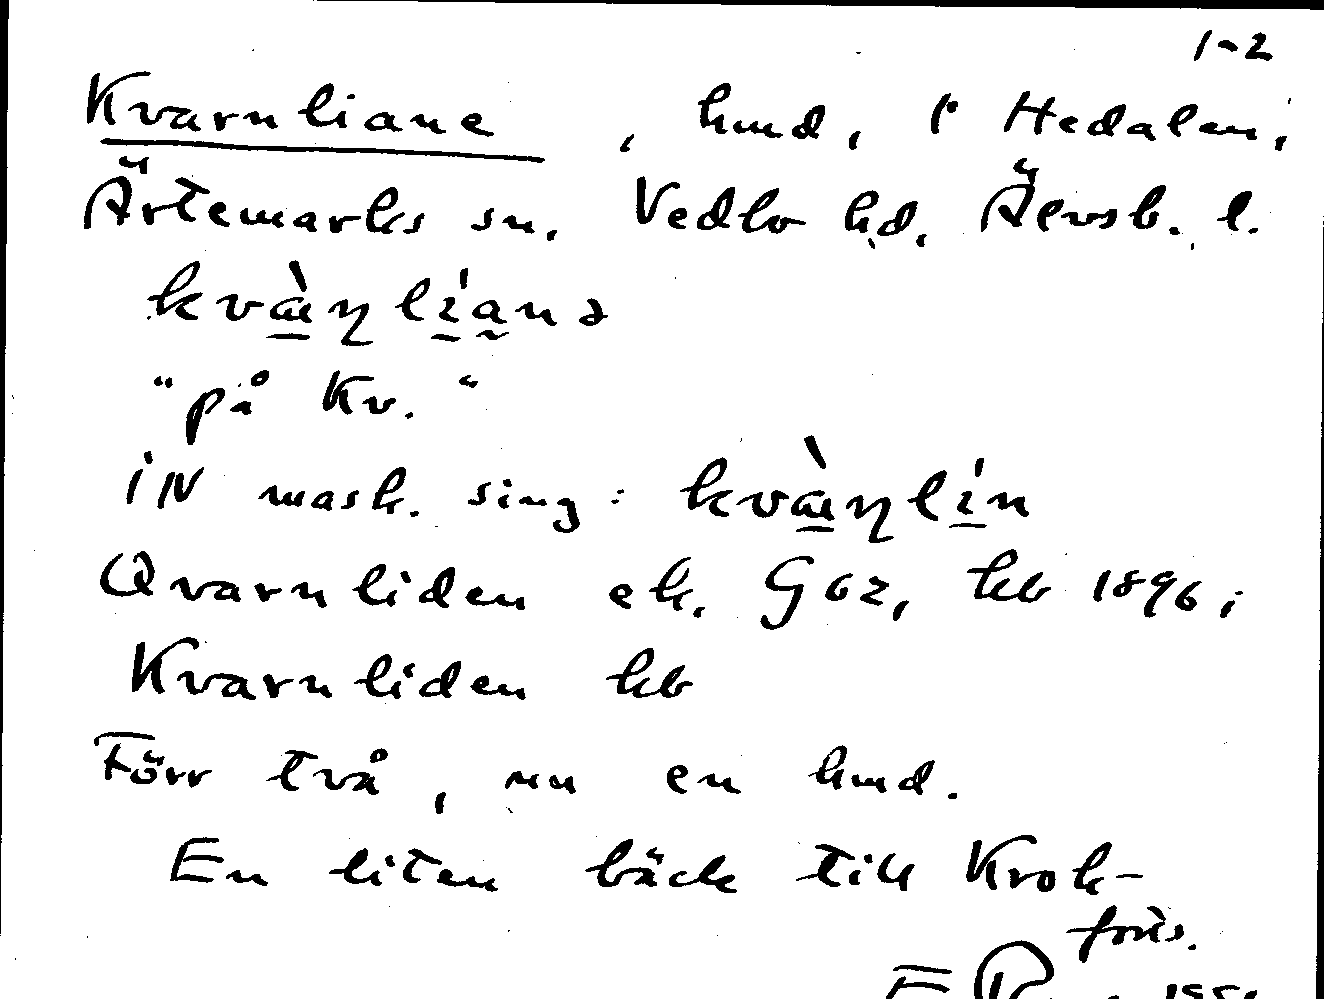 1-2
Kvarnliane, hmd, i Hedalen,
Ärtemarks sn. Vedbo hd. Älvsb. l.
"på Kv."
iN mask. sing:
Qvarnliden ek. G62, kb 1896;
Kvarnliden kb
Förr två, nu en hmd.
En liten bäck till Krok-